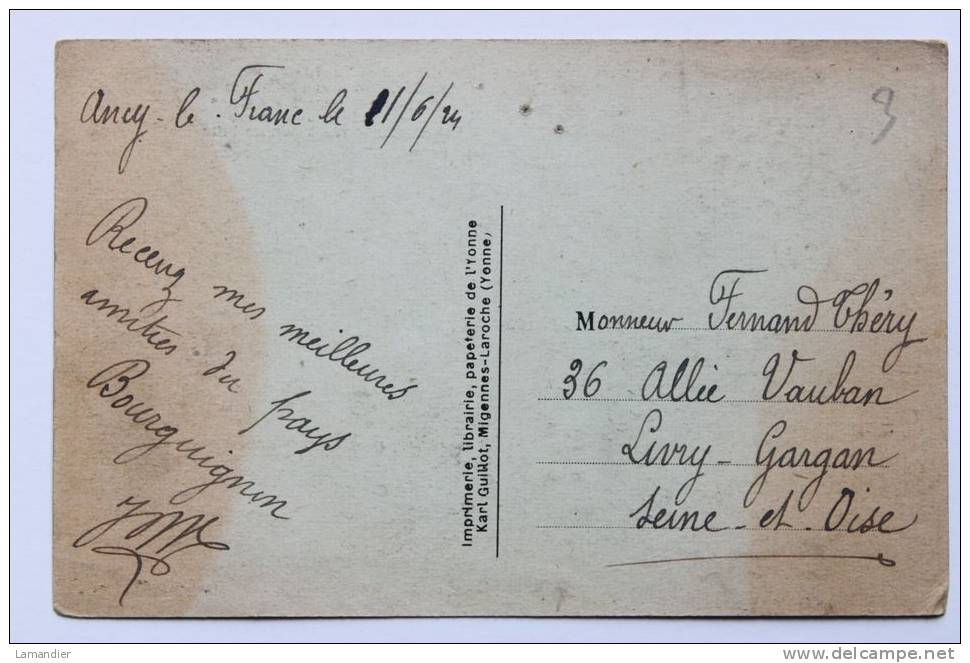 Ancy-le-Franc le 11/6/24
9
Recevez mes meilleures
amitiés du pays
Bourguignon
Imprimerie, librairie, papeterie de l'Yonne
Karl Guillot, Migennes-Laroche (Yonne)
Monsieur Fernand Théry
36 Allée Vauban
Livry-Gargan
Seine-et-Oise
Lamandier
www.delcampe.net